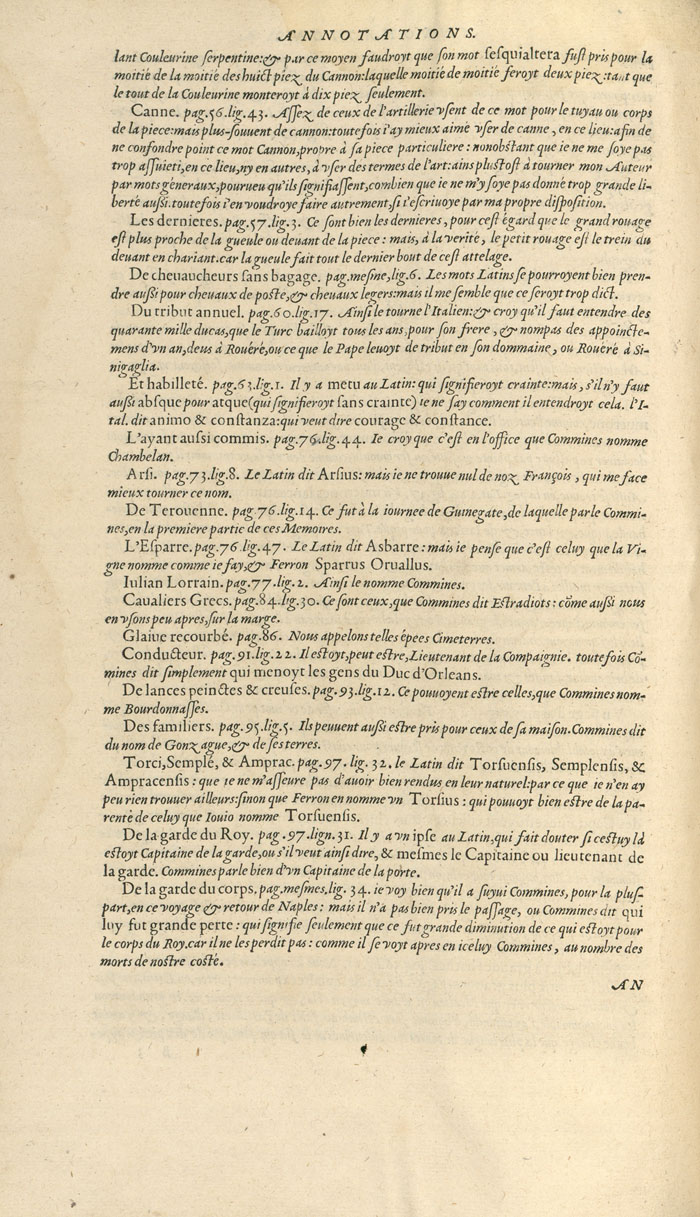 ANNOTATIONS.
lant Couleurine serpentine:& par ce moyen faudroyt que son mot sesquialtera fust pris pour la
moitié de la moitié des huict piez du Cannon:laquelle moitié de moitié feroyt deux piez:tant que
le tout de la Couleurine monteroyt à dix piez seulement.
Canne. pag.56.lig.43. Assez de ceux de l'artillerie vsent de ce mot pour le tuyau ou corps
de la piece:mais plus-souuent de cannon:toutefois i'ay mieux aimé vser de canne, en ce lieu:afin de
ne confondre point ce mot Cannon,propre à sa piece particuliere: nonobstant que ie ne me soye pas
trop assuieti,en ce lieu,ny en autres, à vser des termes de l'art:ains plustost à tourner mon Auteur
par mots gèneraux,pourueu qu'ils signifiassent,combien que ie ne m'y soye pas donné trop grande li-
berté aussi.toutefois i'en voudroye faire autrement,si i'escriuoye par ma propre disposition.
Les dernieres.pag.57.lig.3. Ce sont bien les dernieres, pour cest égard que le grand rouage
est plus proche de la gueule ou deuant de la piece: mais, à la verité, le petit rouage est le trein du
deuant en chariant.car la gueule fait tout le dernier bout de cest attelage.
De cheuaucheurs sans bagage. pag.mesme,lig.6. Les mots Latins se pourroyent bien pren-
dre aussi pour cheuaux de poste,& cheuaux legers:mais il me semble que ce seroyt trop dict.
Du tribut annuel. pag.60.lig.17. Ainsi le tourne l'Italien:& croy qu'il faut entendre des
quarante mille ducas,que le Turc bailloyt tous les ans, pour son frere, & nompas des appoincte-
mens d'vn an,deus à Rouére,ou ce que le Pape leuoyt de tribut en son dommaine, ou Rouére à Si-
nigaglia.
Et habilleté. pag.63.lig.1. Il y a metu au Latin: qui signifieroyt crainte:mais, s'il n'y faut
aussi absque pour atque(qui signifieroyt sans crainte) ie ne say comment il entendroyt cela. l'I-
tal. dit animo & constanza:qui veut dire courage & constance.
L'ayant aussi commis. pag.76.lig.44. Ie croy que c'est en l'office que Commines nomme
Chambelan.
Arsi. pag.73.lig.8. Le Latin dit Arsius: mais ie ne trouue nul de noz François, qui me face
mieux tourner ce nom.
De Terouenne. pag.76.lig.14. Ce fut à la iournee de Guinegate,de laquelle parle Commi-
nes,en la premiere partie de ces Memoires.
L'Esparre.pag.76.lig.47. Le Latin dit Asbarre: mais ie pense que c'est celuy que la Vi-
gne nomme comme ie fay,& Ferron Sparrus Oruallus.
Iulian Lorrain. pag.77.lig.2. Ainsi le nomme Commines.
Caualiers Grecs.pag.84.lig.30. Ce sont ceux,que Commines dit Estradiots: cõme aussi nous
en vsons peu apres,sur la marge.
Glaiue recourbé. pag.86. Nous appelons telles épees Cimeterres.
Conducteur. pag.91.lig.22. Il estoyt,peut estre,Lieutenant de la Compaignie. toutefois Cõ-
mines dit simplement qui menoyt les gens du Duc d'Orleans.
De lances peinctes & creuses.pag.93.lig.12. Ce pouuoyent estre celles,que Commines nom-
me Bourdonnasses.
Des familiers. pag.95.lig.5. Ils peuuent aussi estre pris pour ceux de sa maison.Commines dit
du nom de Gonzague,& de ses terres.
Torci,Semplé, & Amprac.pag.97.lig.32. le Latin dit Torsuensis, Semplensis, &
Ampracensis: que ie ne m'asseure pas d'auoir bien rendus en leur naturel:par ce que ie n'en ay
peu rien trouuer ailleurs:sinon que Ferron en nomme vn Torsius: qui pouuoyt bien estre de la pa-
renté de celuy que Iouio nomme Torsuensis.
De la garde du Roy. pag.97.lign.31. Il y a vn ipse au Latin,qui fait douter si cestuy là
estoyt Capitaine de la garde,ou s'il veut ainsi dire, & mesmes le Capitaine ou lieutenant de
la garde. Commines parle bien d'vn Capitaine de la porte.
De la garde du corps.pag.mesmes,lig. 34. ie voy bien qu'il a suyui Commines, pour la plus-
part,en ce voyage & retour de Naples: mais il n'a pas bien pris le passage, ou Commines dit qui
luy fut grande perte: qui signifie seulement que ce fut grande diminution de ce qui estoyt pour
le corps du Roy.car il ne les perdit pas: comme il se voyt apres en iceluy Commines, au nombre des
morts de nostre costé.
AN